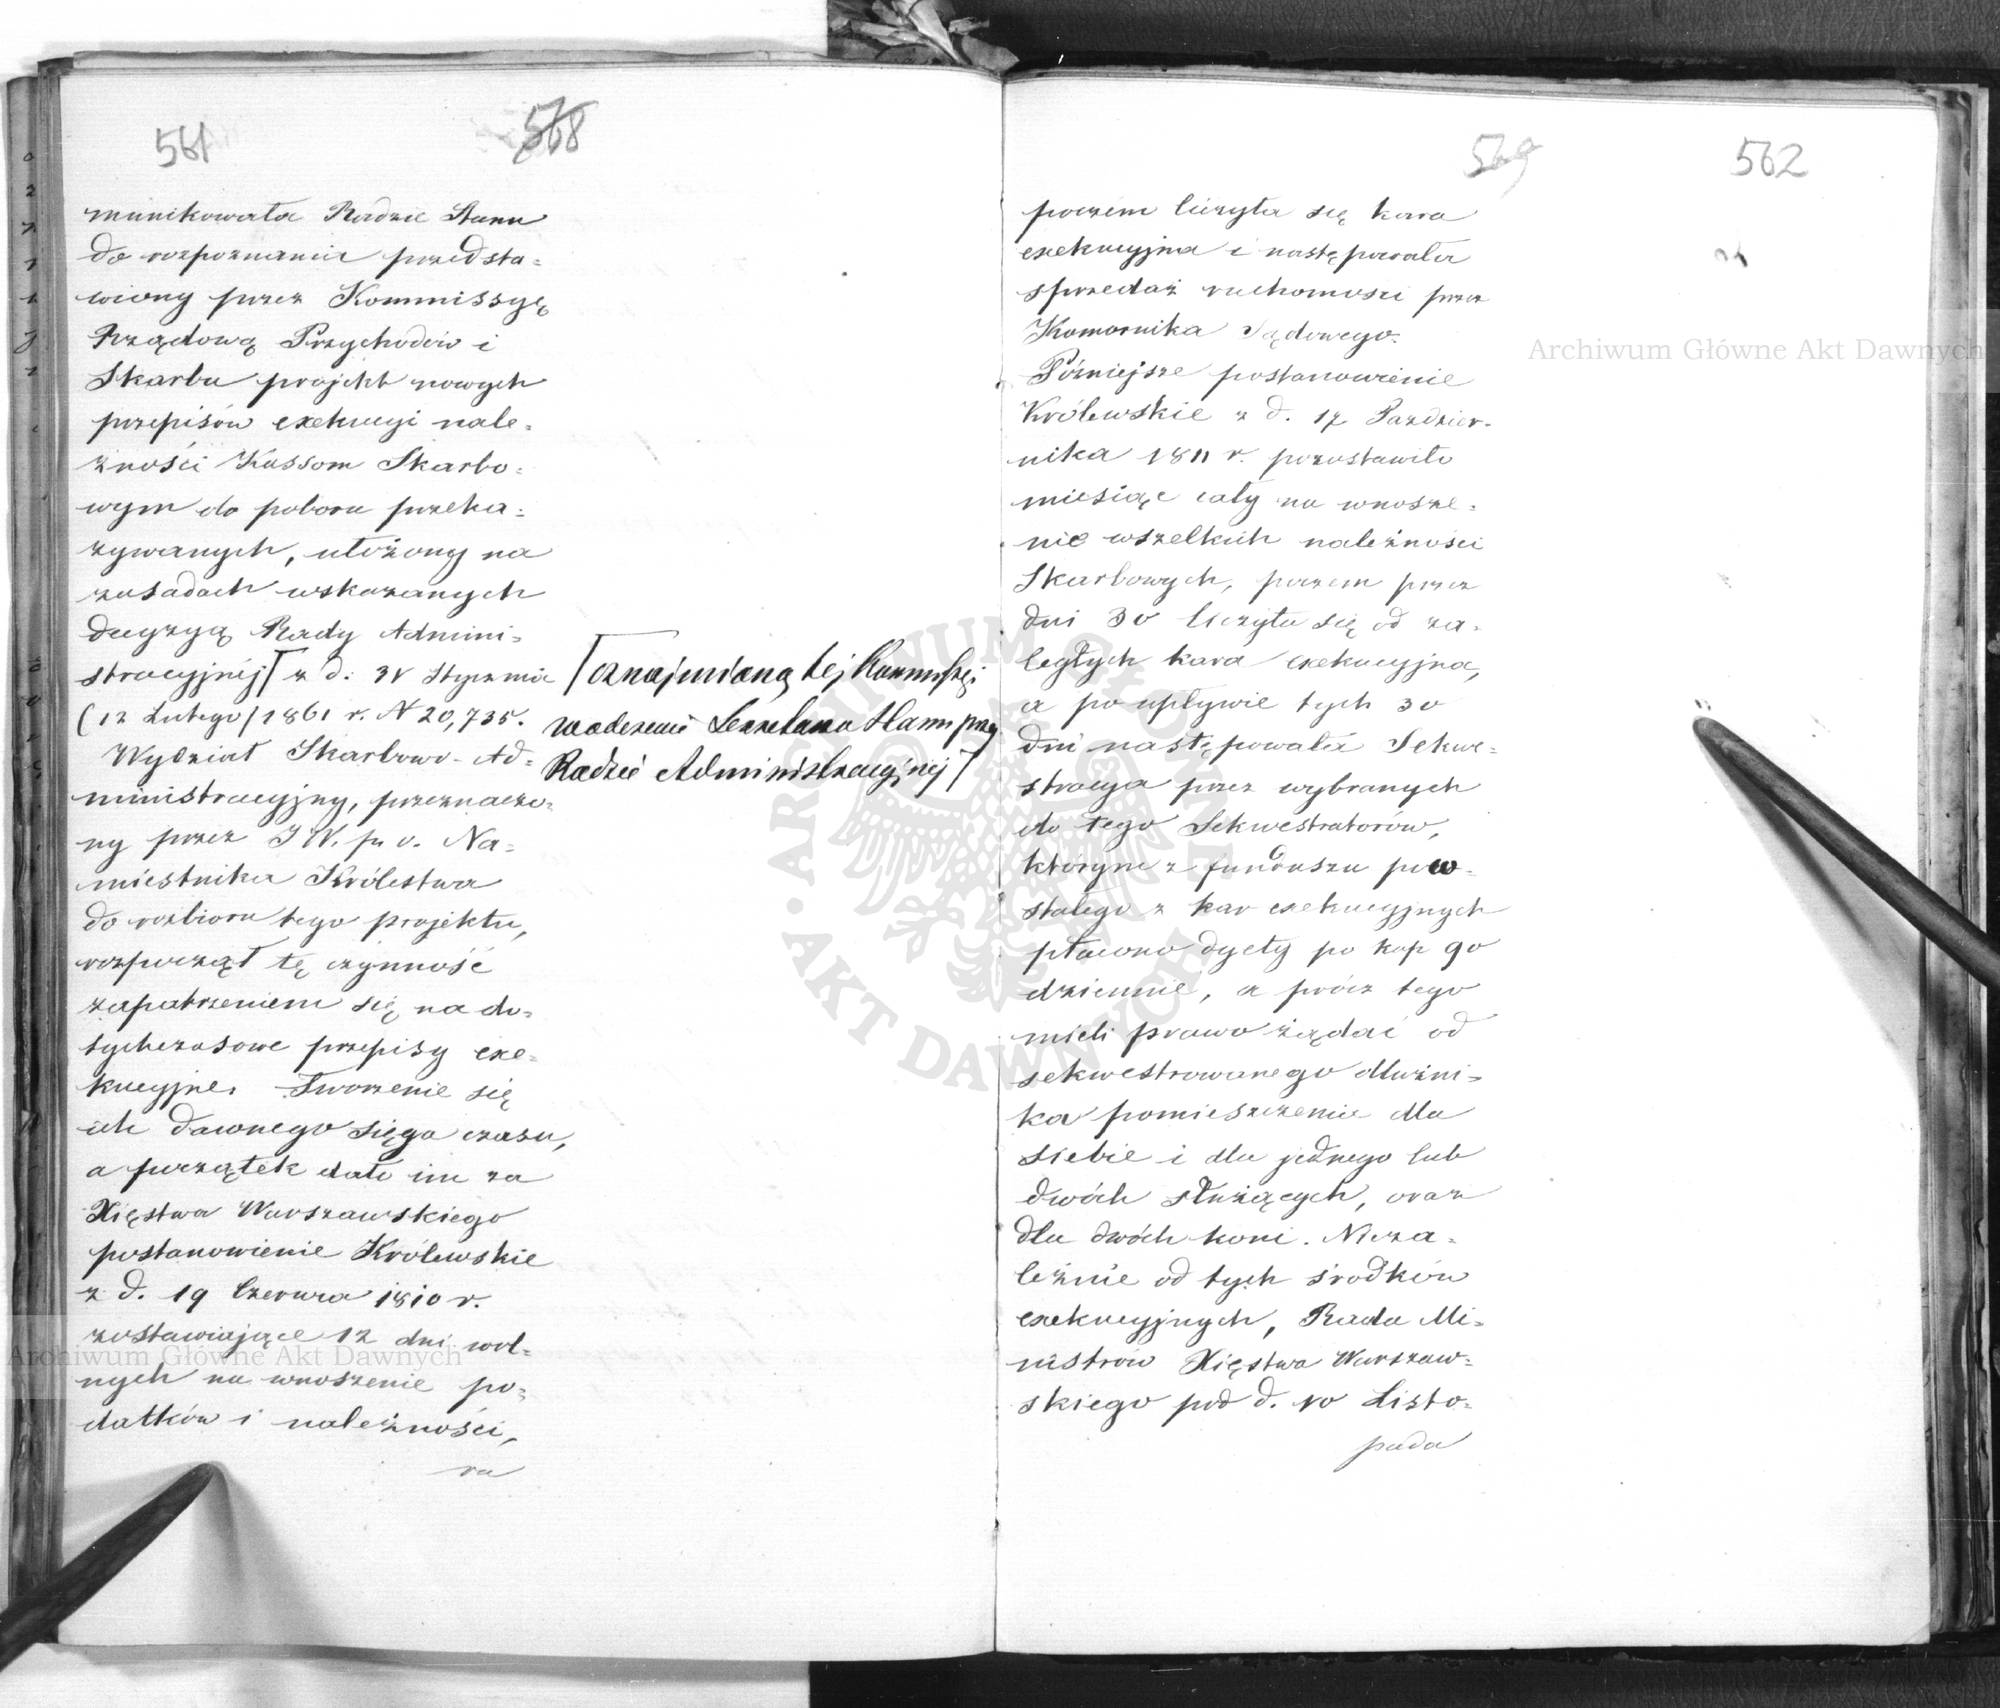 561
568
munikowała Radzie Stanu
do rozpoznania przedsta=
wiony przez Kommissyę
Rządową Przychodów i
Skarbu projekt nowych
przepisów exekucyi nale=
żności Kassom Skarbo=
wym do poboru przeka=
zywanych, ułożony na
zasadach wskazanych
decyzyą Rady Admini=
stracyjnéj z d: 31 Stycznia
(12 Lutego) 1861 r. N 20,735.
Wydział Skarbowo-Ad=
ministracyjny, przeznaczo=
ny przez JW. p. o. Na=
miestnika Królestwa
do rozbioru tego projektu,
rozpoczął tę czynność
zapatrzeniem się na do=
tychczasowe przepisy exe=
kucyjne. Tworzenie się
ich dawnego sięga czasu,
a początek dało im za
Xięstwa Warszawskiego
postanowienie Królewskie
z d. 19 Czerwca 1810 r.
zostawiające 12 dni wol=
nych na wnoszenie po=
datków i należności,
oznajmioną tej Kommissyi
Sekretarza Stanu przy
Radzie Administracyjnej
569
562
poczem liczyła się kara
exekucyjna i następowała
sprzedaż ruchomości przez
Komornika Sądowego.
Późniejsze postanowienie
Królewskie z d. 17 Paździer-
nika 1811 r. pozostawiło
miesiąc cały na wnosze=
nie wszelkich należności
Skarbowych, poczem przez
dni 30 liczyła się od za=
ległych kara exekucyjna,
a po upływie tych 30
dni następowała Sekwe=
stracya przez wybranych
do tego Sekwestratorów,
którym z funduszu pow=
stałego z kar exekucyjnych
płacono dyety po kop 90
dziennie, a prócz tego
mieli prawo żądać od
sekwestrowanego dłużni=
ka pomieszczenia dla
siebie i dla jednego lub
dwóch służących, oraz
dla dwóch koni. Nieza=
leżnie od tych środków
exekucyjnych, Rada Mi=
nistrów Xięstwa Warszaw=
skiego pod d. 10 Listo=
pada
Archiwum Główne Akt Dawnych
Archiwum Główne Akt Dawnych
ARCHIWUM GŁÓWNE
AKT DAWNYCH